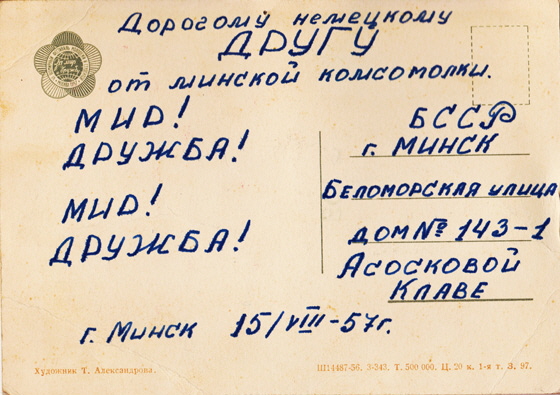 Дорогому немецкому
ДРУГУ
от минской комсомолки.
МИР!
ДРУЖБА!
МИР!
ДРУЖБА!
г. Минск 15/VIII-57г.
БССР
г. МИНСК
Беломорская улица
дом № 143-1
Асосковой
Клаве
Художник Т. Александрова.
Ш14487-56. З-343. Т. 500 000. Ц. 20 к. 1-я т. З. 97.